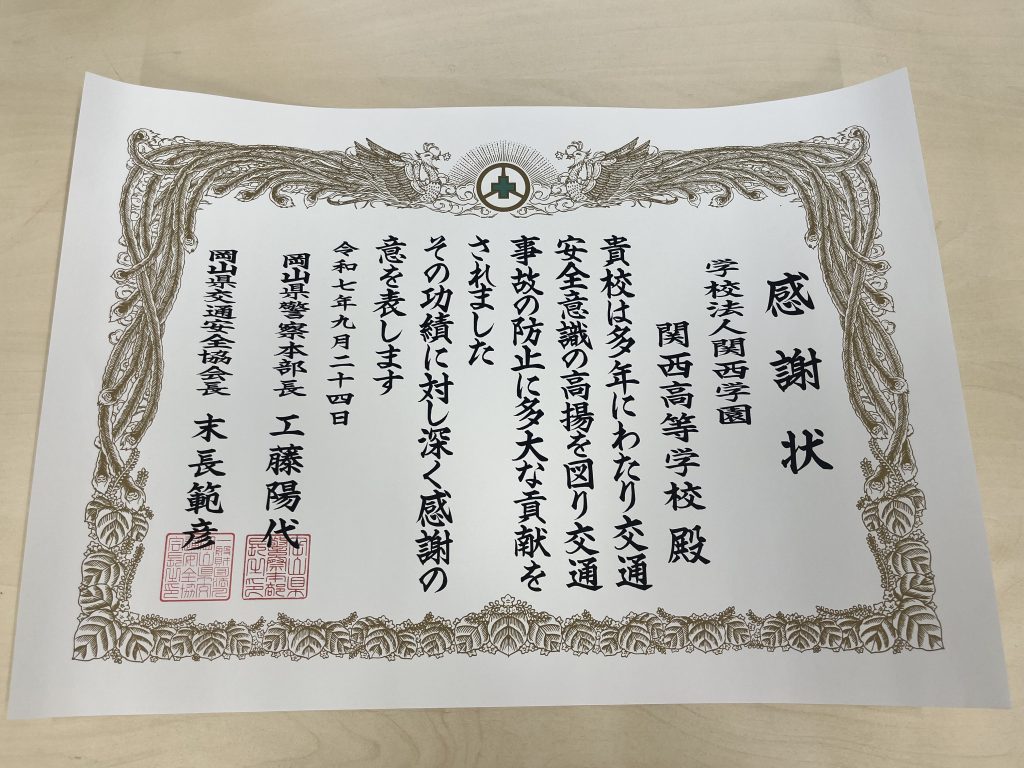 感謝状
学校法人関西学園
関西高等学校 殿
貴校は多年にわたり交通
安全意識の高揚を図り交通
事故の防止に多大な貢献を
されました
その功績に対し深く感謝の
意を表します
令和七年九月二十四日
岡山県警察本部長 工藤陽代
岡山県交通安全協会長 末長範彦